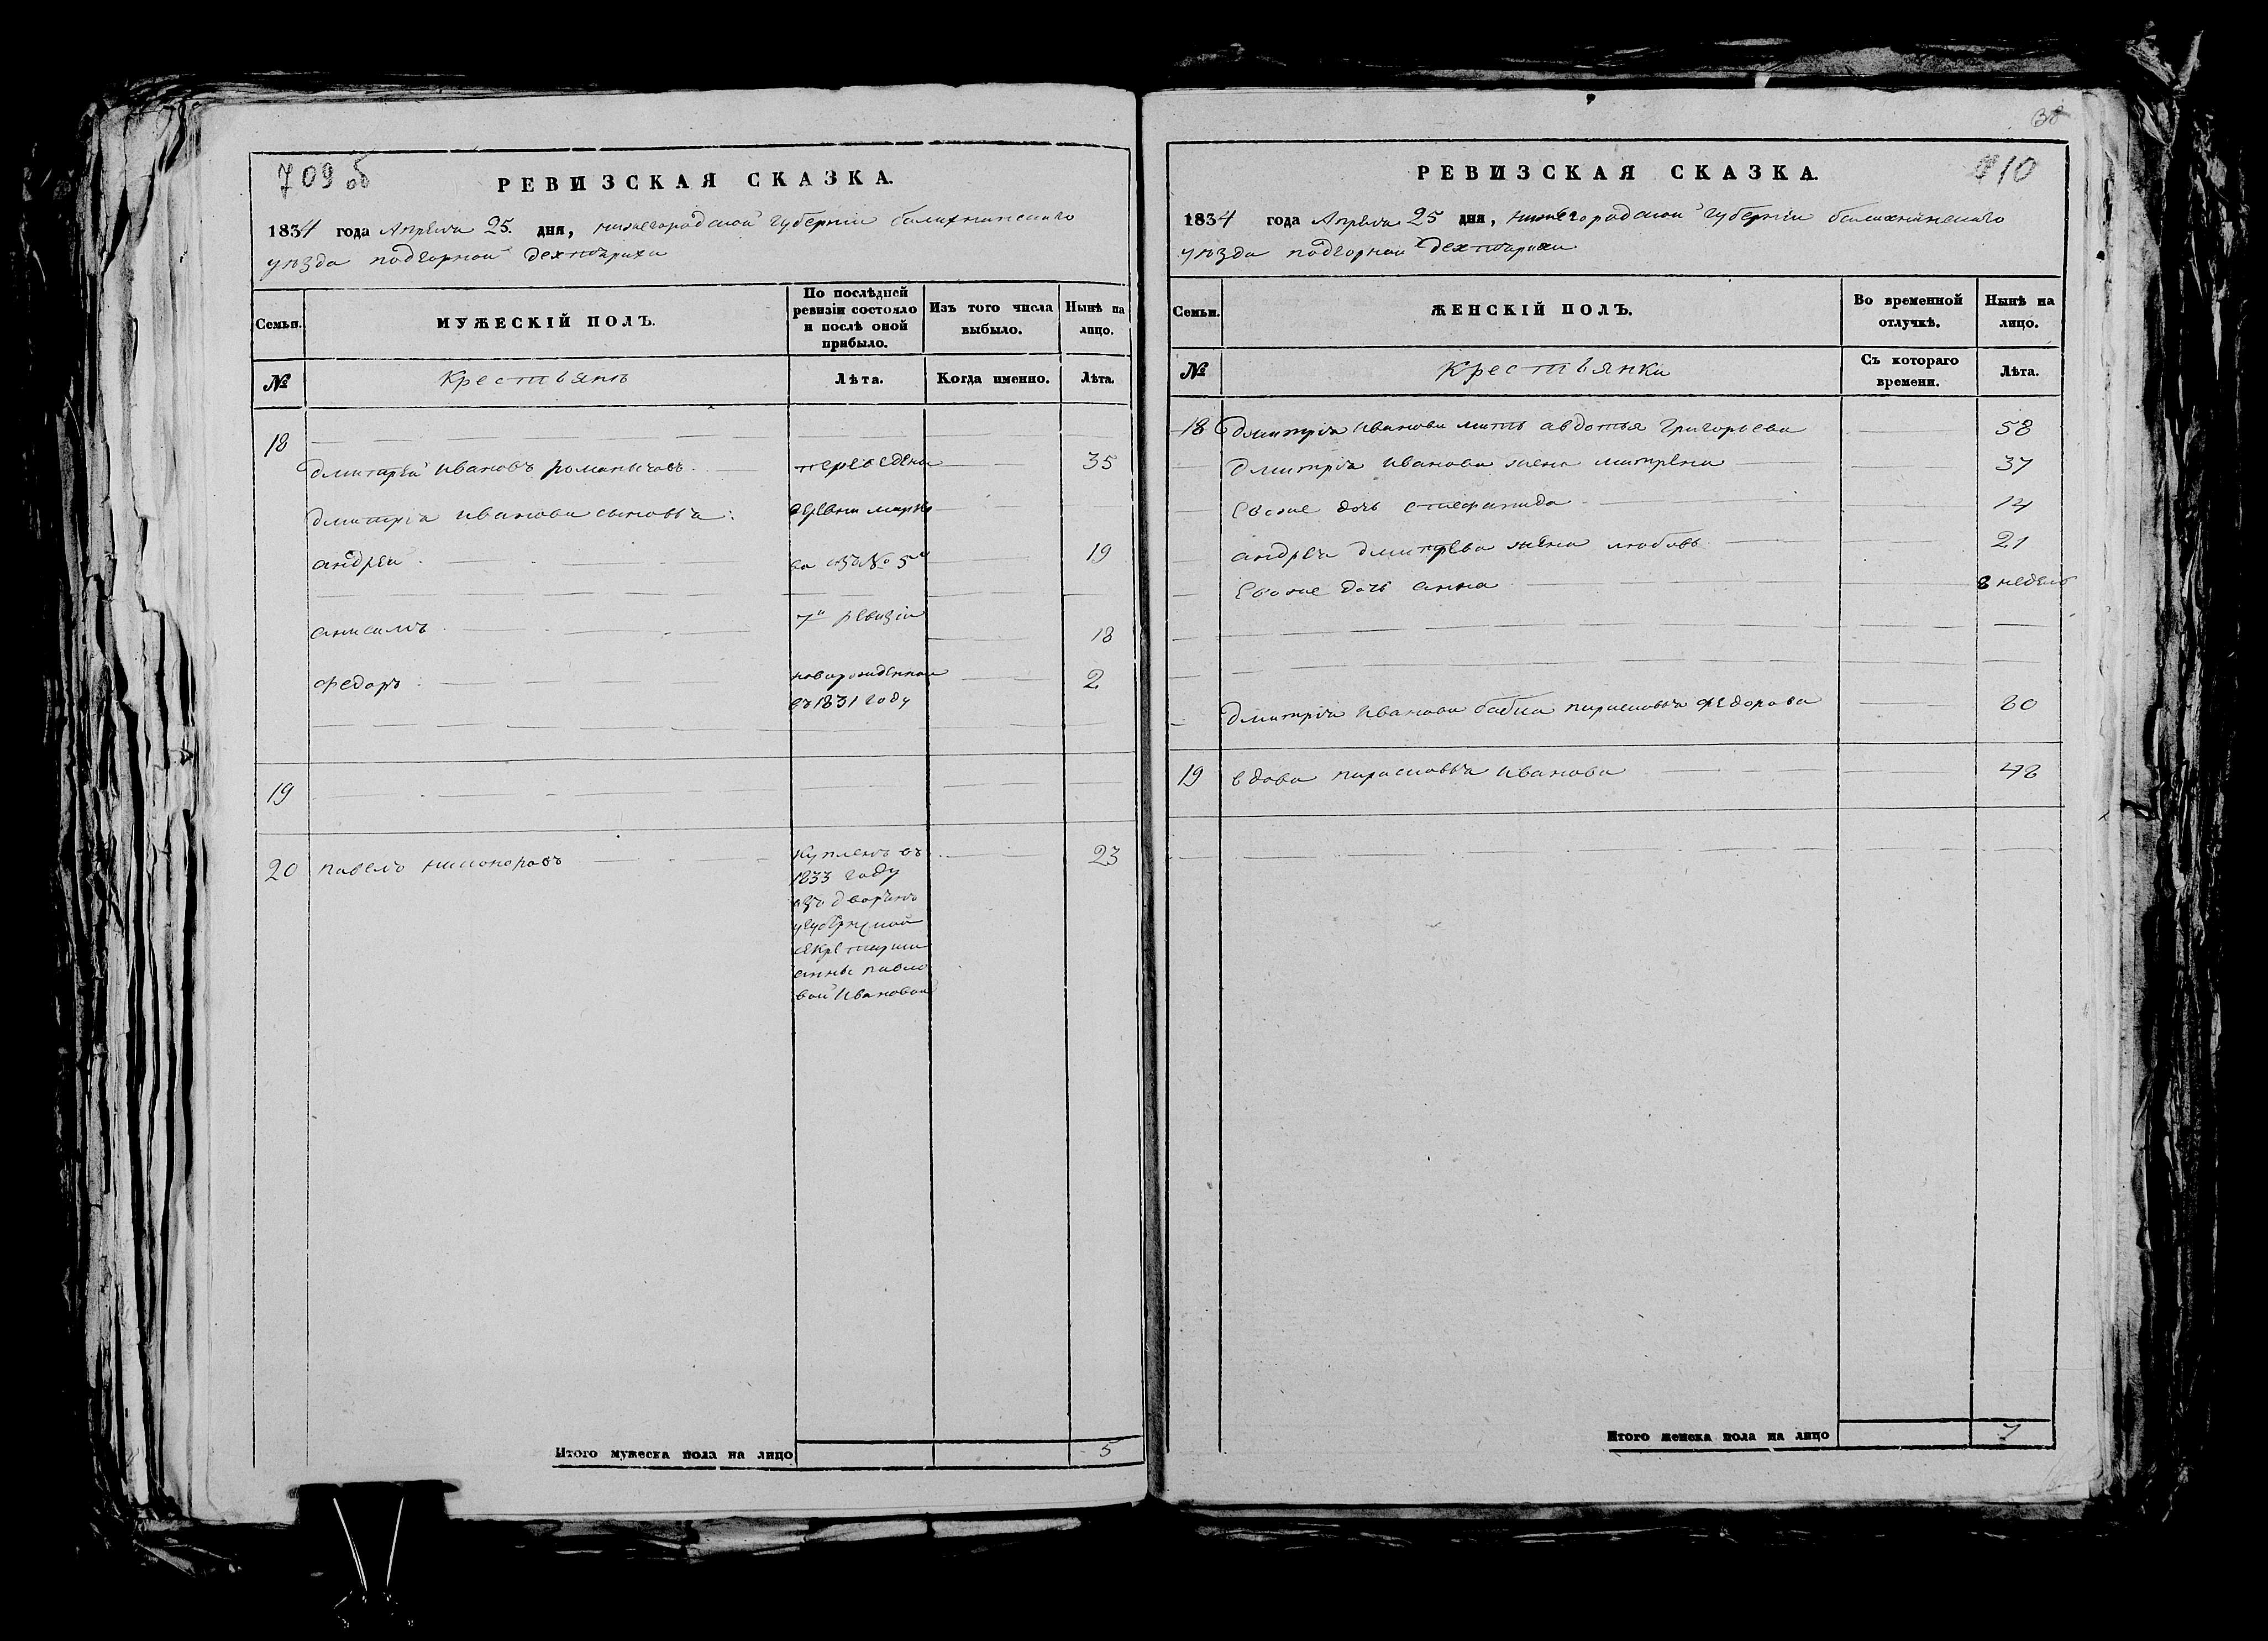 709 об
РЕВИЗСКАЯ СКАЗКА.
1834 года Апреля 25. дня, нижегородской губернии балахнинскаго
уѣзда подгорной дехтярихи
Семьи. МУЖЕСКІЙ ПОЛЪ. По послѣдней ревизіи состояло и послѣ оной прибыло. Изъ того числа выбыло. Нынѣ на лицо.
№ Крестьянъ Лѣта. Когда именно. Лѣта.
18
дмитрей Ивановъ романычовъ переведены 35
дмитрія Иванова сыновья: деревни
андрей 5й 19
анисимъ 7й ревизіи 18
федоръ новорожденной 2
въ 1831 году
19
20 павелъ никоноровъ купленъ въ 23
1833 году
изъ дворянъ
у губернской
секретарши
анны павло
вой Ивановой
Итого мужеска пола на лицо 5
38
710
РЕВИЗСКАЯ СКАЗКА.
1834 года Апреля 25 дня, нижегородской губерніи балахнинскаго
уѣзда подгорной дехтярихи
Семьи. ЖЕНСКІЙ ПОЛЪ. Во временной отлучкѣ. Нынѣ на лицо.
№ Крестьянки Съ котораго времени. Лѣта.
18 дмитрія Иванова мать авдотья Григорьева 58
дмитрія Иванова жена матрена 37
Евоже дочь степанида 14
андрея дмитрева жена любовь 21
Евоже дочь анна 8 недель
дмитрія Иванова бабка парасковья Федорова 80
19 вдова парасковья Иванова 48
Итого женска пола на лицо 7